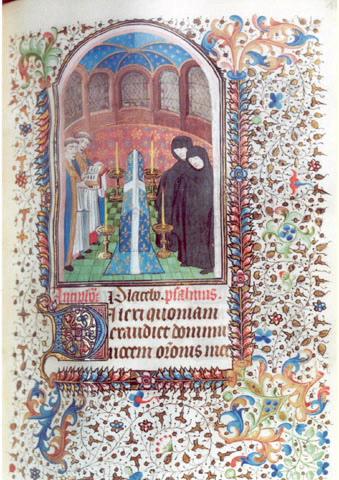 Placebo. psalmus.
Dilexi quoniam
exaudiet dominu
uocem orōnis mee